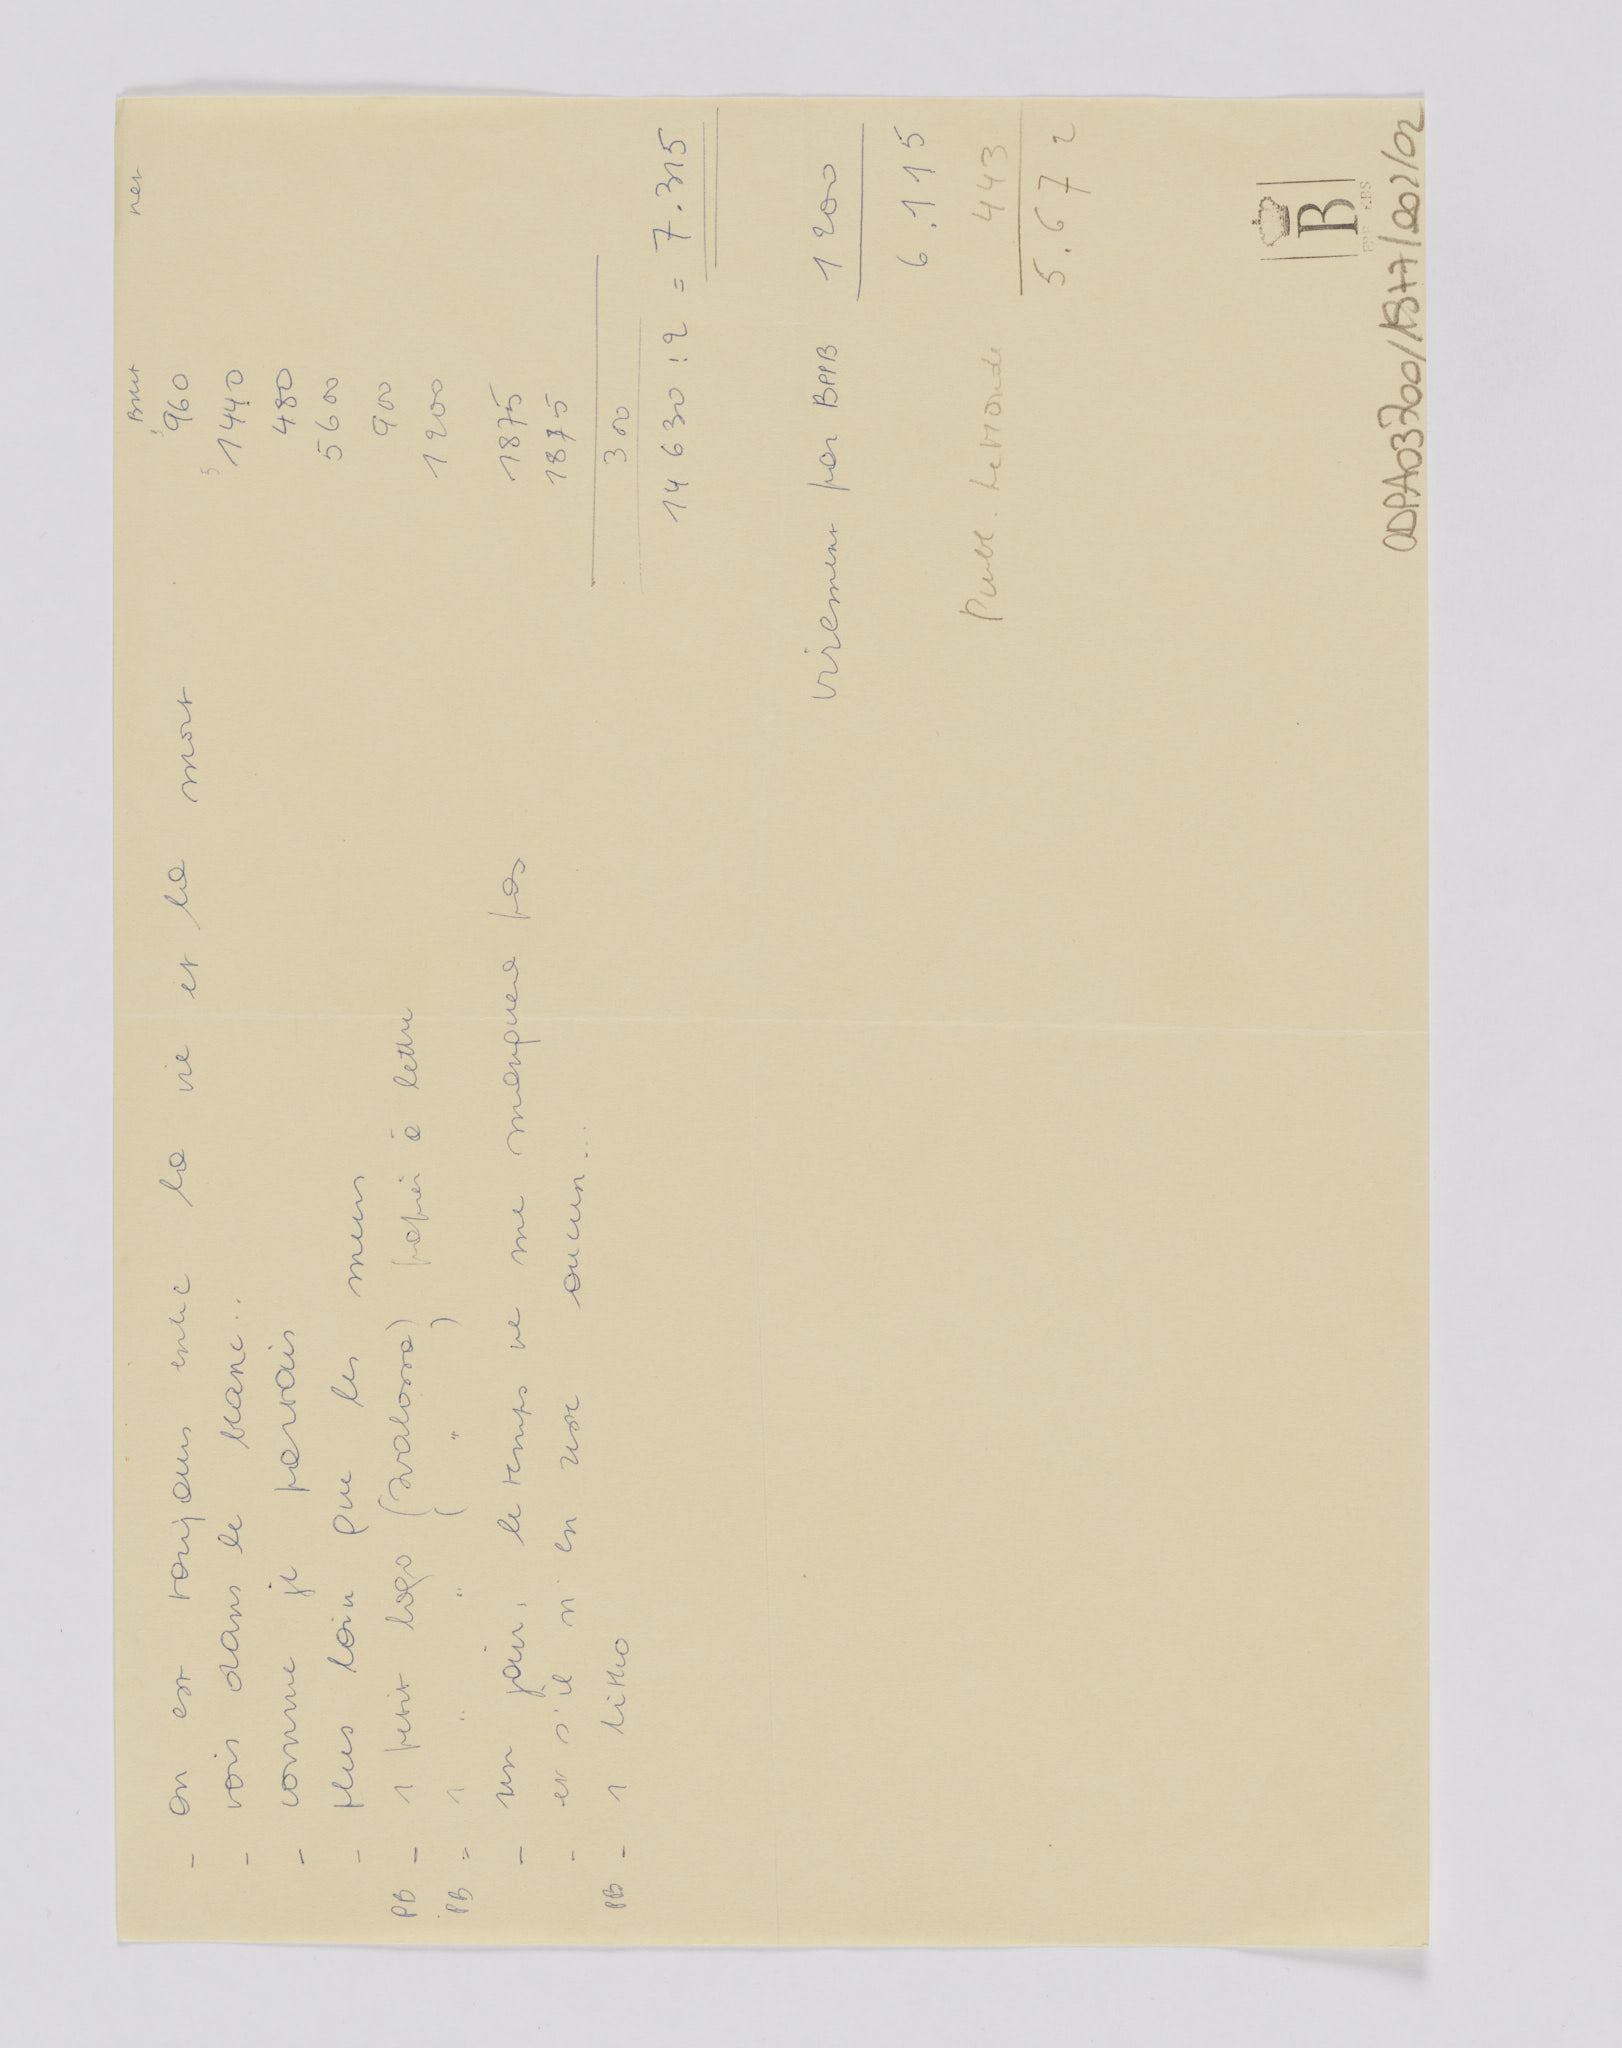 Brut net
- on est toujours entre la vie et la mort 960
- vois dans le blanc.. 1440
- comme je pensais 480
- plus loin que les murs 5600
PB - 1 petit logo (svalossa) papier à lettre 900
PB = 1 " " ( " ) 1200
- un jour, le temps ne me manquera pas 1875
- et s'il n'en use aucun... 1875
PB - 1 litho 300
14630 : 2 = 7.315
virement par BPPB 1200
6.115
Publ. Le Monde 443
5.672
B
ODPA03700/B77/002/02